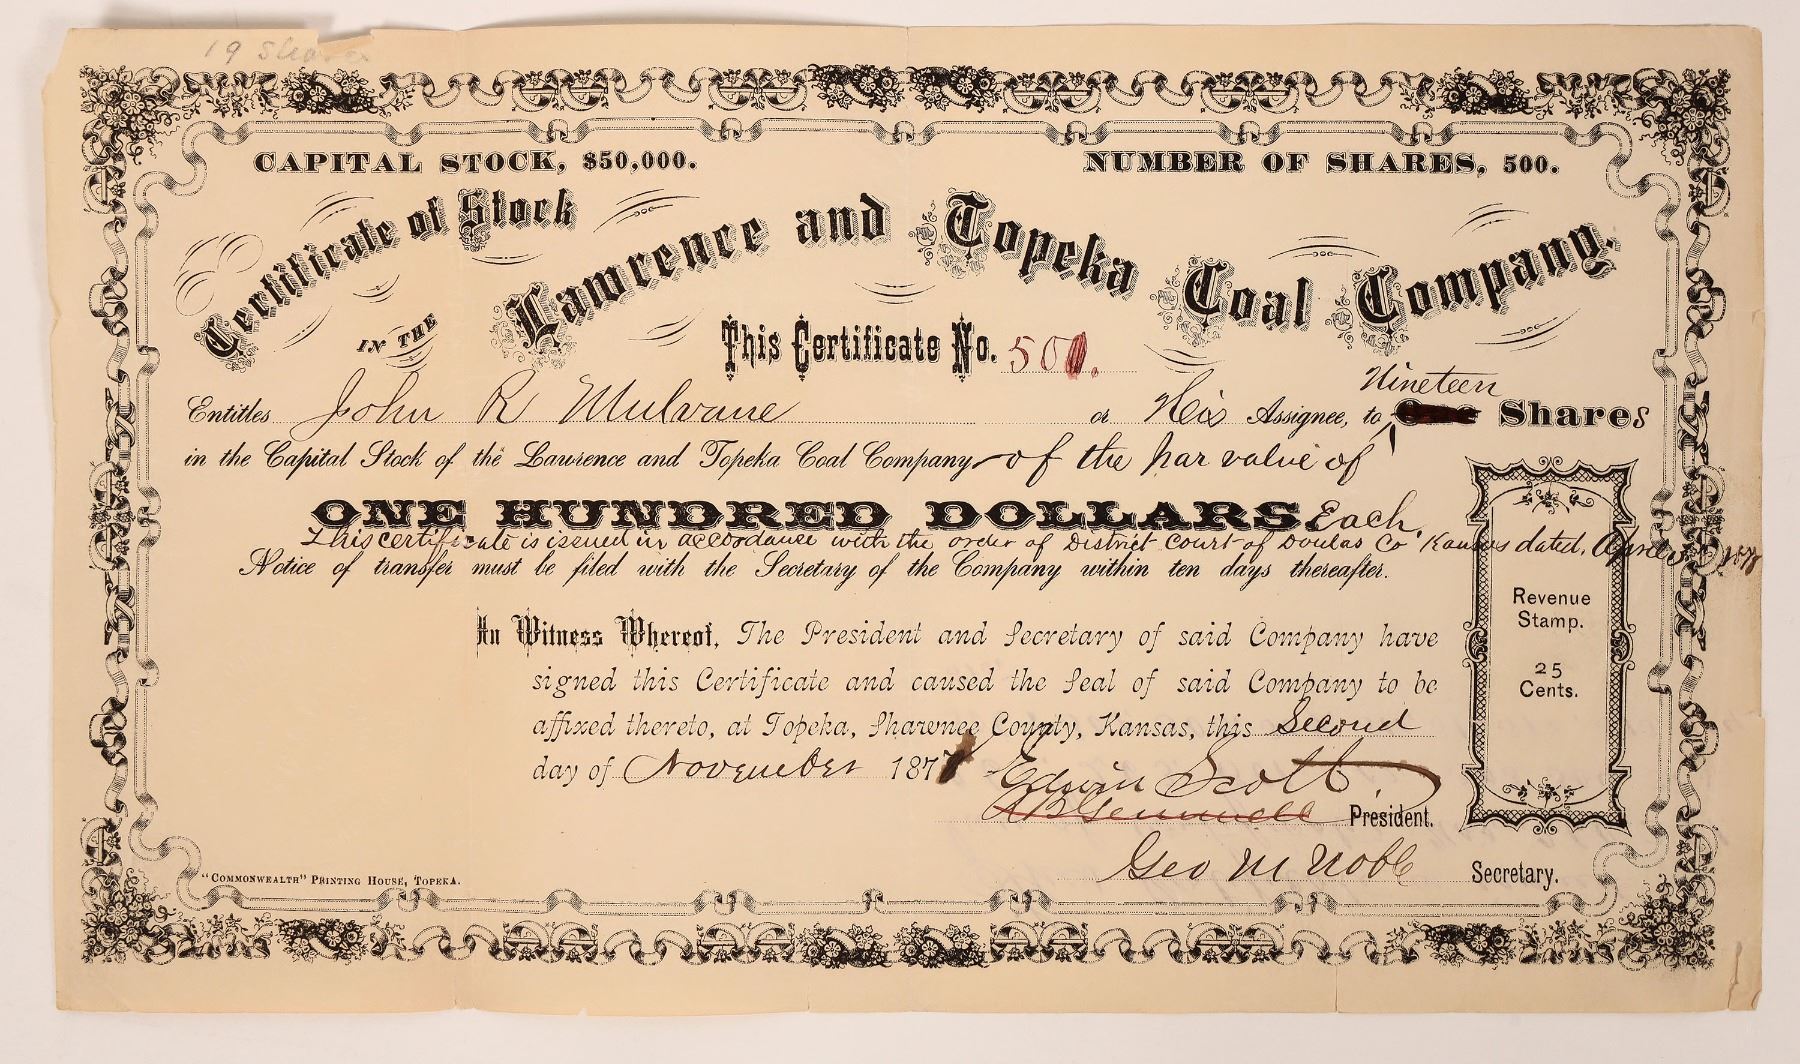 19 Shares
CAPITAL STOCK, $50,000.
NUMBER OF SHARES, 500.
Certificate of Stock
IN THE
Lawrence and Topeka Coal Company.
This Certificate No. 501.
Entitles John R Mulvane or His Assignee, to Nineteen Shares
in the Capital Stock of the Lawrence and Topeka Coal Company of the par value of
ONE HUNDRED DOLLARS Each,
This certificate is issued in accordance with the order of District Court of Doulas Co Kansas dated, April 5 1878
Notice of transfer must be filed with the Secretary of the Company within ten days thereafter.
In Witness Whereof, The President and Secretary of said Company have
signed this Certificate and caused the Seal of said Company to be
affixed thereto, at Topeka, Shawnee County, Kansas, this Second
day of November 187
Edwin Scott
President.
Geo M Noble Secretary.
Revenue
Stamp.
25
Cents.
"COMMONWEALTH" PRINTING HOUSE, TOPEKA.